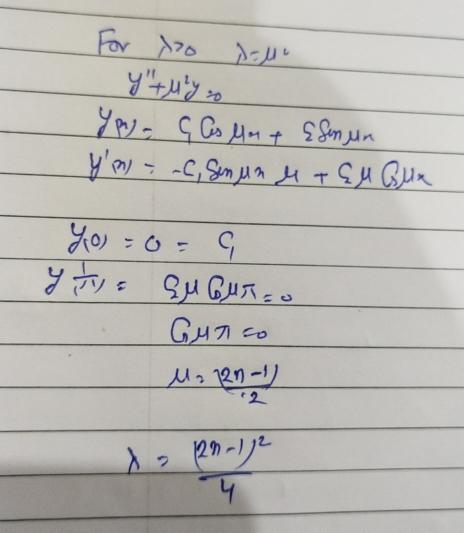 For λ>0 λ=μ²
y''+μ²y=0
y(x) = C₁ Cos μx + C₂ Sin μx
y'(x) = -C₁ Sin μx μ + C₂ μ Cos μx
y(0) = 0 = C₁
y'(π) = C₂ μ Cos μπ = 0
Cos μπ = 0
μ = (2n-1)/2
λ = (2n-1)²/4